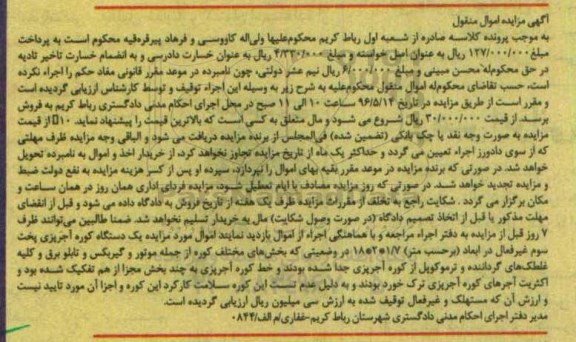 آگهی مزایده اموال منقول
به موجب پرونده کلاسه صادره از شعبه اول رباط کریم محکوم‌علیها ولی‌اله کاووسی و فرهاد پیرقرقیه محکوم است به پرداخت
مبلغ ۱۲۷/۰۰۰/۰۰۰ ریال به عنوان اصل خواسته و مبلغ ۴/۳۳۰/۰۰۰ ریال به عنوان خسارت دادرسی و به انضمام خسارت تاخیر تادیه
در حق محکوم‌له محسن مبینی و مبلغ ۶/۰۰۰/۰۰۰ ریال نیم عشر دولتی، چون نامبرده در موعد مقرر قانونی مفاد حکم را اجراء نکرده
است، حسب تقاضای محکوم‌له اموال منقول محکوم‌علیه به شرح زیر به وسیله این اجراء توقیف و توسط کارشناس ارزیابی گردیده است
و مقرر است از طریق مزایده در تاریخ ۹۶/۵/۱۴ ساعت ۱۰ الی ۱۱ صبح در محل اجرای احکام مدنی دادگستری رباط کریم به فروش
برسد. از قیمت ۳۰/۰۰۰/۰۰۰ ریال شروع می شود و مال متعلق به کسی است که بالاترین قیمت را پیشنهاد نماید. ۱۰٪ از قیمت
مزایده به صورت وجه نقد یا چک بانکی (تضمین شده) فی‌المجلس از برنده مزایده دریافت می شود و الباقی وجه مزایده ظرف مهلتی
که از سوی دادورز اجراء تعیین می گردد و حداکثر یک ماه از تاریخ مزایده تجاوز نخواهد کرد، از خریدار اخذ و اموال به نامبرده تحویل
خواهد شد. در صورتی که برنده مزایده در موعد مقرر بقیه بهای اموال را نپردازد، سپرده او پس از کسر هزینه مزایده به نفع دولت ضبط
و مزایده تجدید خواهد شد. در صورتی که روز مزایده مصادف با ایام تعطیل شود، مزایده فردای اداری همان روز در همان ساعت و
مکان برگزار می گردد. شکایت راجع به تخلف از مقررات مزایده ظرف یک هفته از تاریخ فروش به دادگاه داده می شود و قبل از انقضای
مهلت مذکور یا قبل از اتخاذ تصمیم دادگاه (در صورت وصول شکایت) مال به خریدار تسلیم نخواهد شد. ضمنا طالبین می‌توانند ظرف
۷ روز قبل از مزایده به دفتر اجراء مراجعه و با هماهنگی اجراء از اموال بازدید نمایند اموال مورد مزایده یک دستگاه کوره آجرپزی پخت
سوم غیرفعال در ابعاد (برحسب متر) ۱/۷*۲*۱۸ در وضعیتی که بخش‌های مختلف کوره از جمله موتور و گیربکس و تابلو برق و کلیه
غلطک‌های گرداننده و ترموکوپل از کوره آجرپزی جدا شده بودند و خط کوره آجرپزی به چند بخش مجزا از هم تفکیک شده بود و
اکثریت آجرهای کوره آجرپزی ترک خورد بودند و به دلیل عدم تست این کوره سلامت کارکرد این کوره و اجزا آن مورد تایید نیست
و ارزش آن که مستهلک و غیرفعال توقیف شده به ارزش سی میلیون ریال ارزیابی گردیده است.
مدیر دفتر اجرای احکام مدنی دادگستری شهرستان رباط کریم-غفاری/م الف/۰۸۴۴